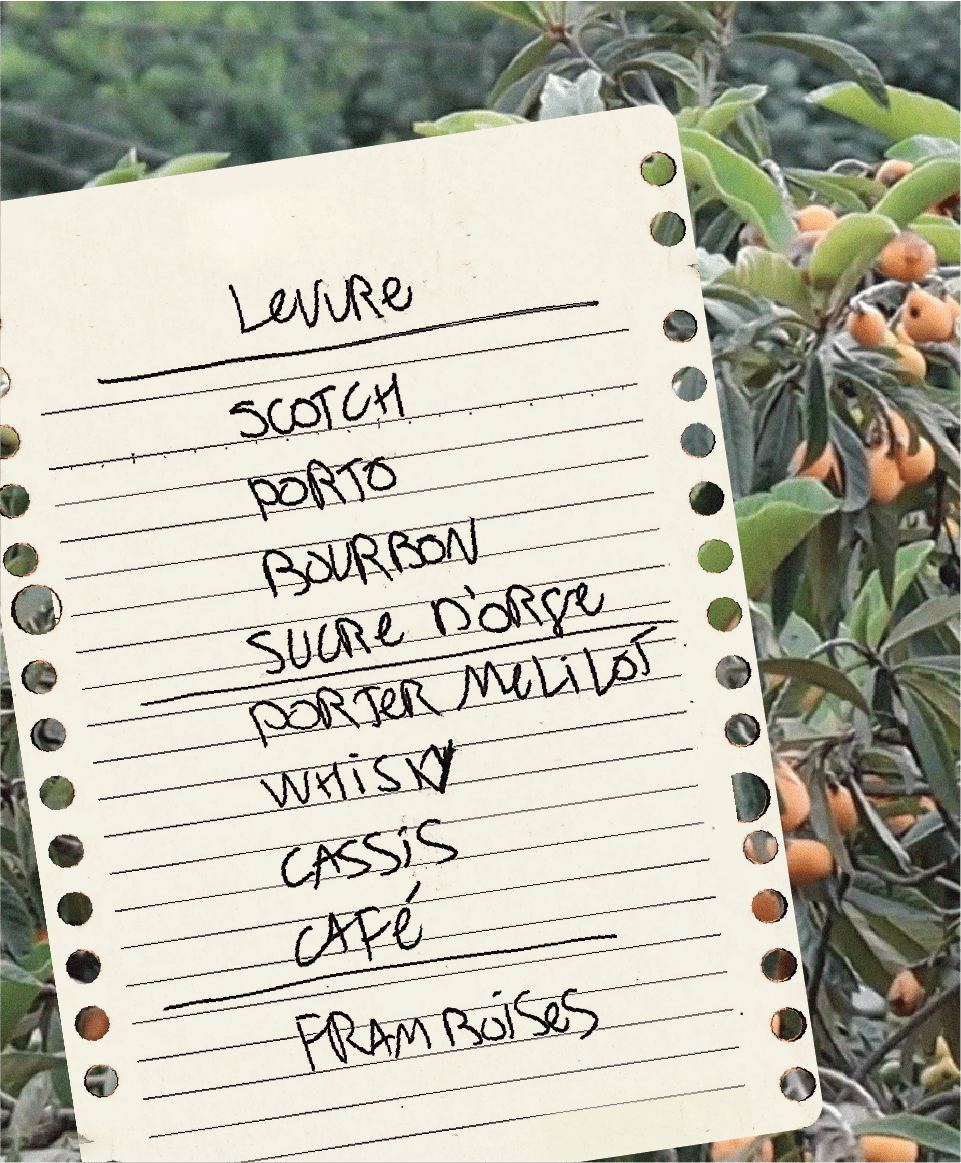 LEVURE
SCOTCH
PORTO
BOURBON
SUCRE D'ORGE
PORTER MELILOT
WHISKY
CASSIS
CAFÉ
FRAMBOISES